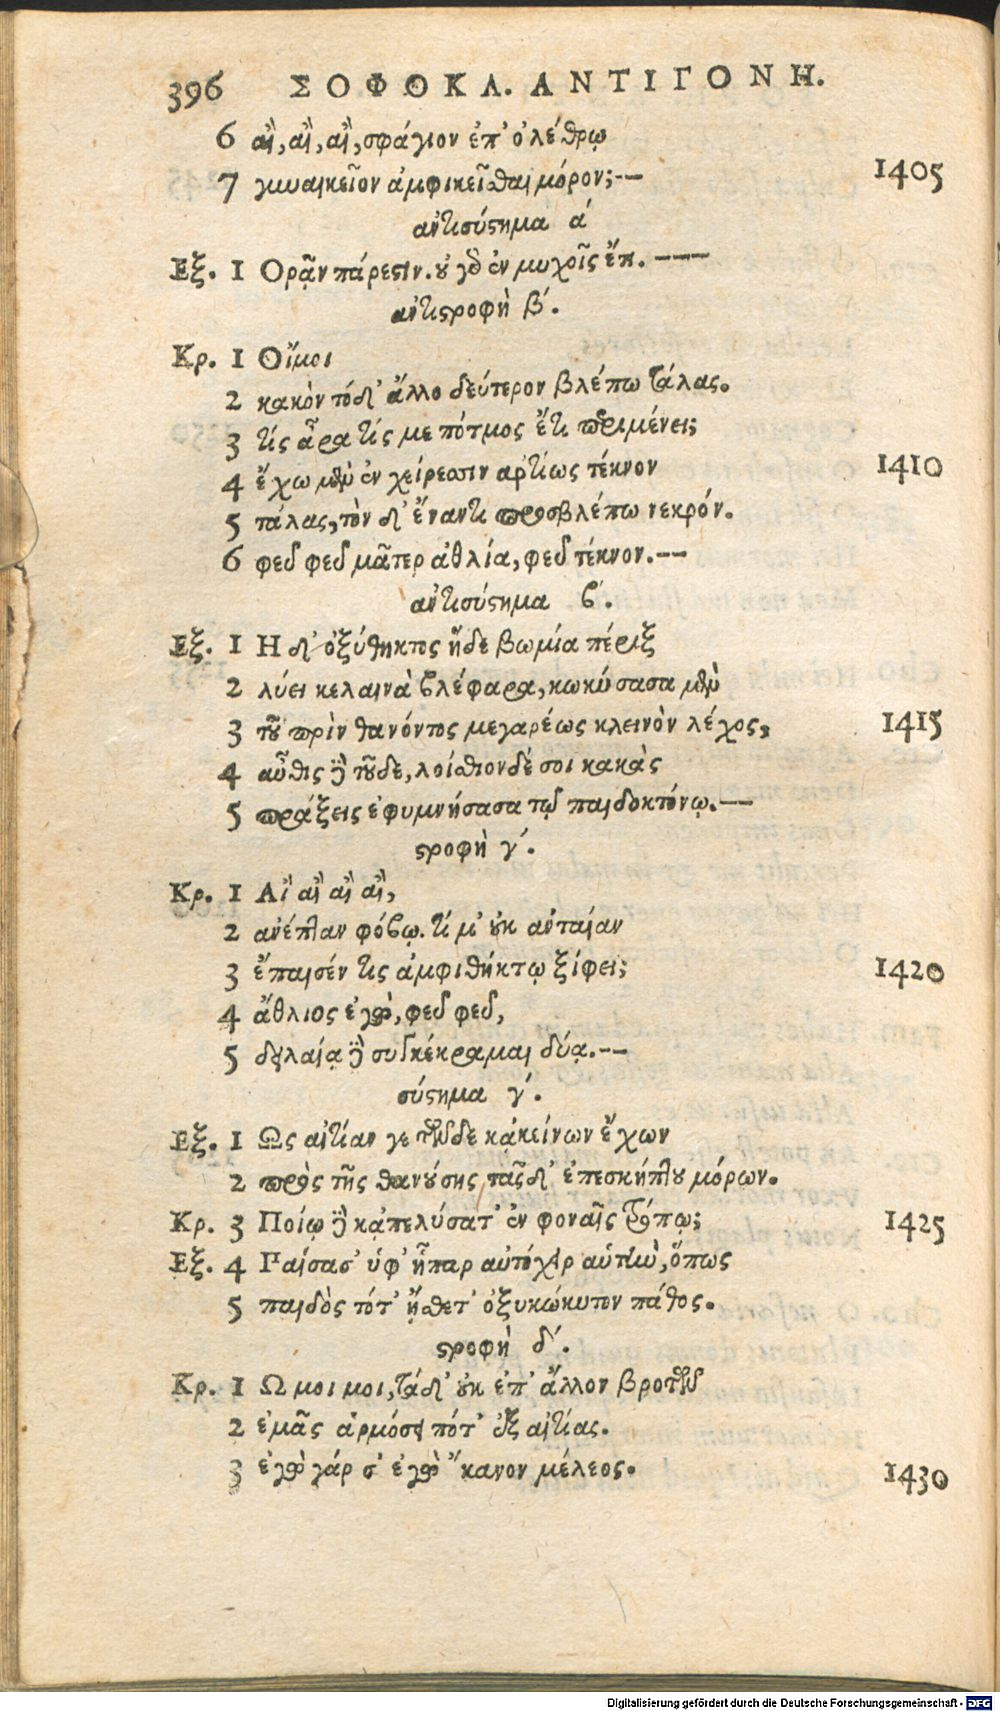 396 ΣΟΦΟΚΛ. ΑΝΤΙΓΟΝΗ.
6 αἲ, αἲ, αἲ, σφάγιον ἐπ' ὀλέθρῳ
7 γυναικεῖον ἀμφικεῖσθαι μόρον;-- 1405
ἀντισύστημα ά
Εξ. 1 Ορᾷν πάρεστιν. οὐ γὸ ἐν μυχοῖς ἔπ. ----
ἀντιστροφὴ β´.
Κρ. 1 Οἴμοι
2 κακὸν τόδ' ἄλλο δεύτερον βλέπω τάλας.
3 τίς ἆρα τίς με πότμος ἔτι περιμένει;
4 ἔχω μὲν ἐν χείρεσσιν ἀρτίως τέκνον 1410
5 τάλας, τὸν δ' ἔναντι προσβλέπω νεκρόν.
6 φεῦ φεῦ μᾶτερ ἀθλία, φεῦ τέκνον.--
ἀντισύστημα β´.
Εξ. 1 Η δ' ὀξύθηκτος ἥδε βωμία πέριξ
2 λύει κελαινὰ βλέφαρα, κωκύσασα μὲν
3 τοῦ πρὶν θανόντος μεγαρέως κλεινὸν λέχος, 1415
4 αὖθις δὲ τοῦδε, λοίσθιον δέ σοι κακὰς
5 πράξεις ἐφυμνήσασα τῷ παιδοκτόνῳ.--
στροφὴ γ´.
Κρ. 1 Αἲ αἲ αἲ αἲ,
2 ἀνέπταν φόβῳ. τί μ' οὐκ ἀνταίαν
3 ἔπαισέν τις ἀμφιθήκτῳ ξίφει; 1420
4 ἄθλιος ἐγὼ, φεῦ φεῦ,
5 δουλαίᾳ δὲ συγκέκραμαι δύᾳ.--
σύστημα γ´.
Εξ. 1 Ως αἰτίαν γε τῶνδε κἀκείνων ἔχων
2 πρὸς τῆς θανούσης τᾶςδ' ἐπεσκήπτου μόρων.
Κρ. 3 Ποίῳ δὲ κἀπελύσατ' ἐν φοναῖς τρόπῳ; 1425
Εξ. 4 Παίσασ' ὑφ' ἧπαρ αὐτόχειρ αὑτὴν, ὅπως
5 παιδὸς τότ' ᾔσθετ' ὀξυκώκυτον πάθος.
στροφὴ δ´.
Κρ. 1 Ω μοι μοι, τάδ' οὐκ ἐπ' ἄλλον βροτῶν
2 ἐμᾶς ἁρμόσει πότ' ἐξ αἰτίας.
3 ἐγὼ γάρ σ' ἐγὼ ἔκανον μέλεος. 1430
Digitalisierung gefördert durch die Deutsche Forschungsgemeinschaft - DFG